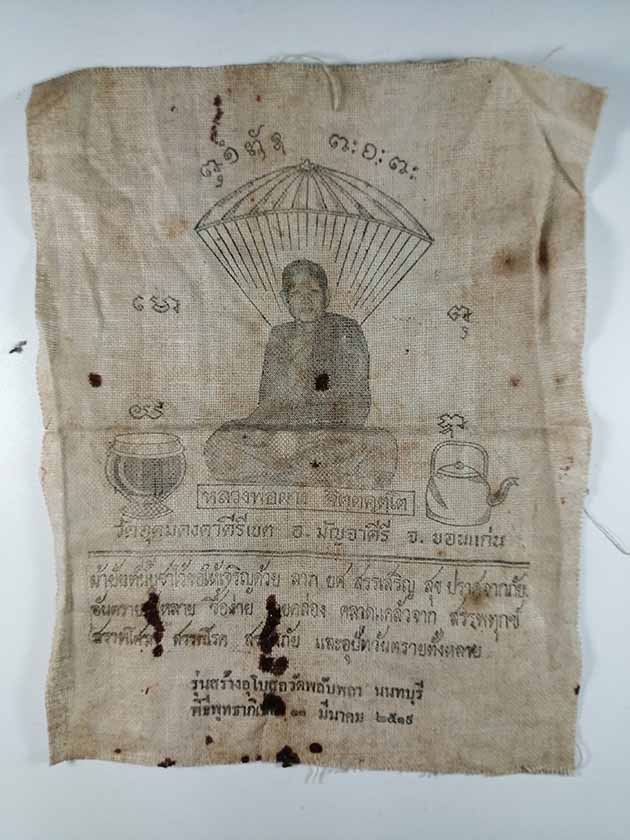 หลวงพ่อผาง จิตตคุตโต
วัดอุดมคงคาคีรีเขต อ. มัญจาคีรี จ. ขอนแก่น
ผ้ายันต์นี้บูชาไว้จะได้เจริญด้วย ลาภ ยศ สรรเสริญ สุข ปราศจากภัย
อันตราย หลาย ซื้อง่าย ขายคล่อง คลาดแคล้วจาก สรรพทุกข์
สรรพโศรก สรรพโรค สรรพภัย และอุปัทวันตรายทั้งหลาย
รุ่นสร้างอุโบสถวัดพลับพลา นนทบุรี
พิธีพุทธาภิเษก ๑๓ มีนาคม ๒๕๑๙